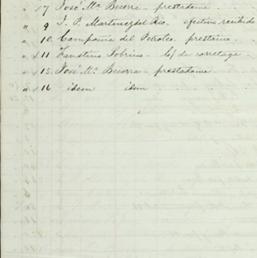 " " 7 José Ma. Becerra - prestadome
" " 9 J. P. Martinez del Rio. efectivo recibido
" " 10 Compañia del Petroleo. prestamo
" " 11 Faustino Sobrino - de corretage.
" " 15 José Ma. Becerra - prestadome
" " 16 idem idem